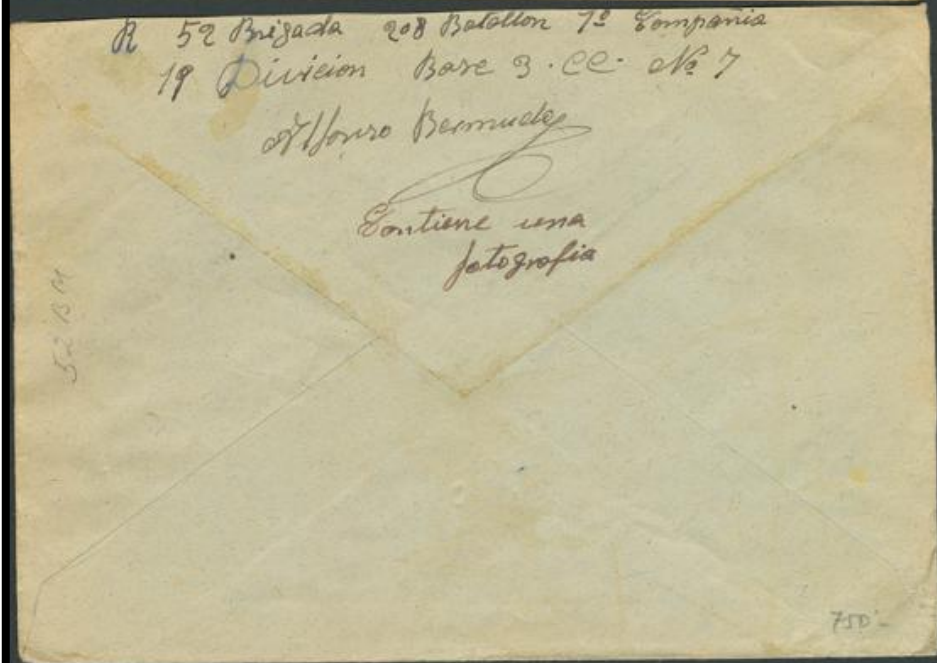 R 52 Brigada 208 Batallon 1ª Compañia
19 Division Base 3. CC. Nº 7
Alfonso Bermudez
Contiene una
fotografia
52 BM
750'-